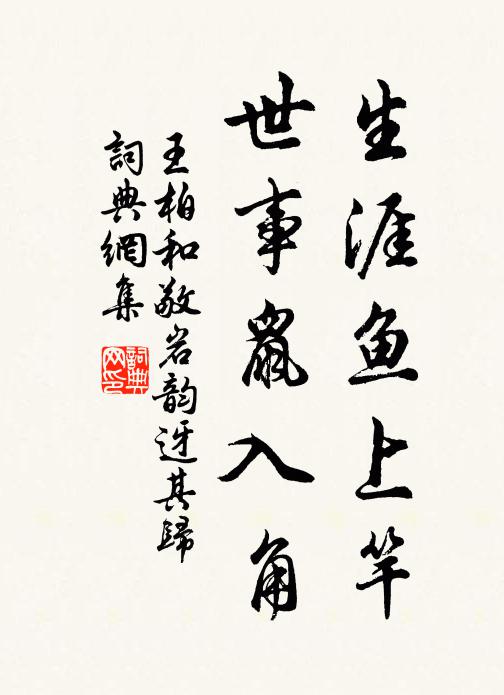 生涯鱼上竿
世事鼠入角
王柏和敬岩韵迓其歸
詞典網集
詞典
网印